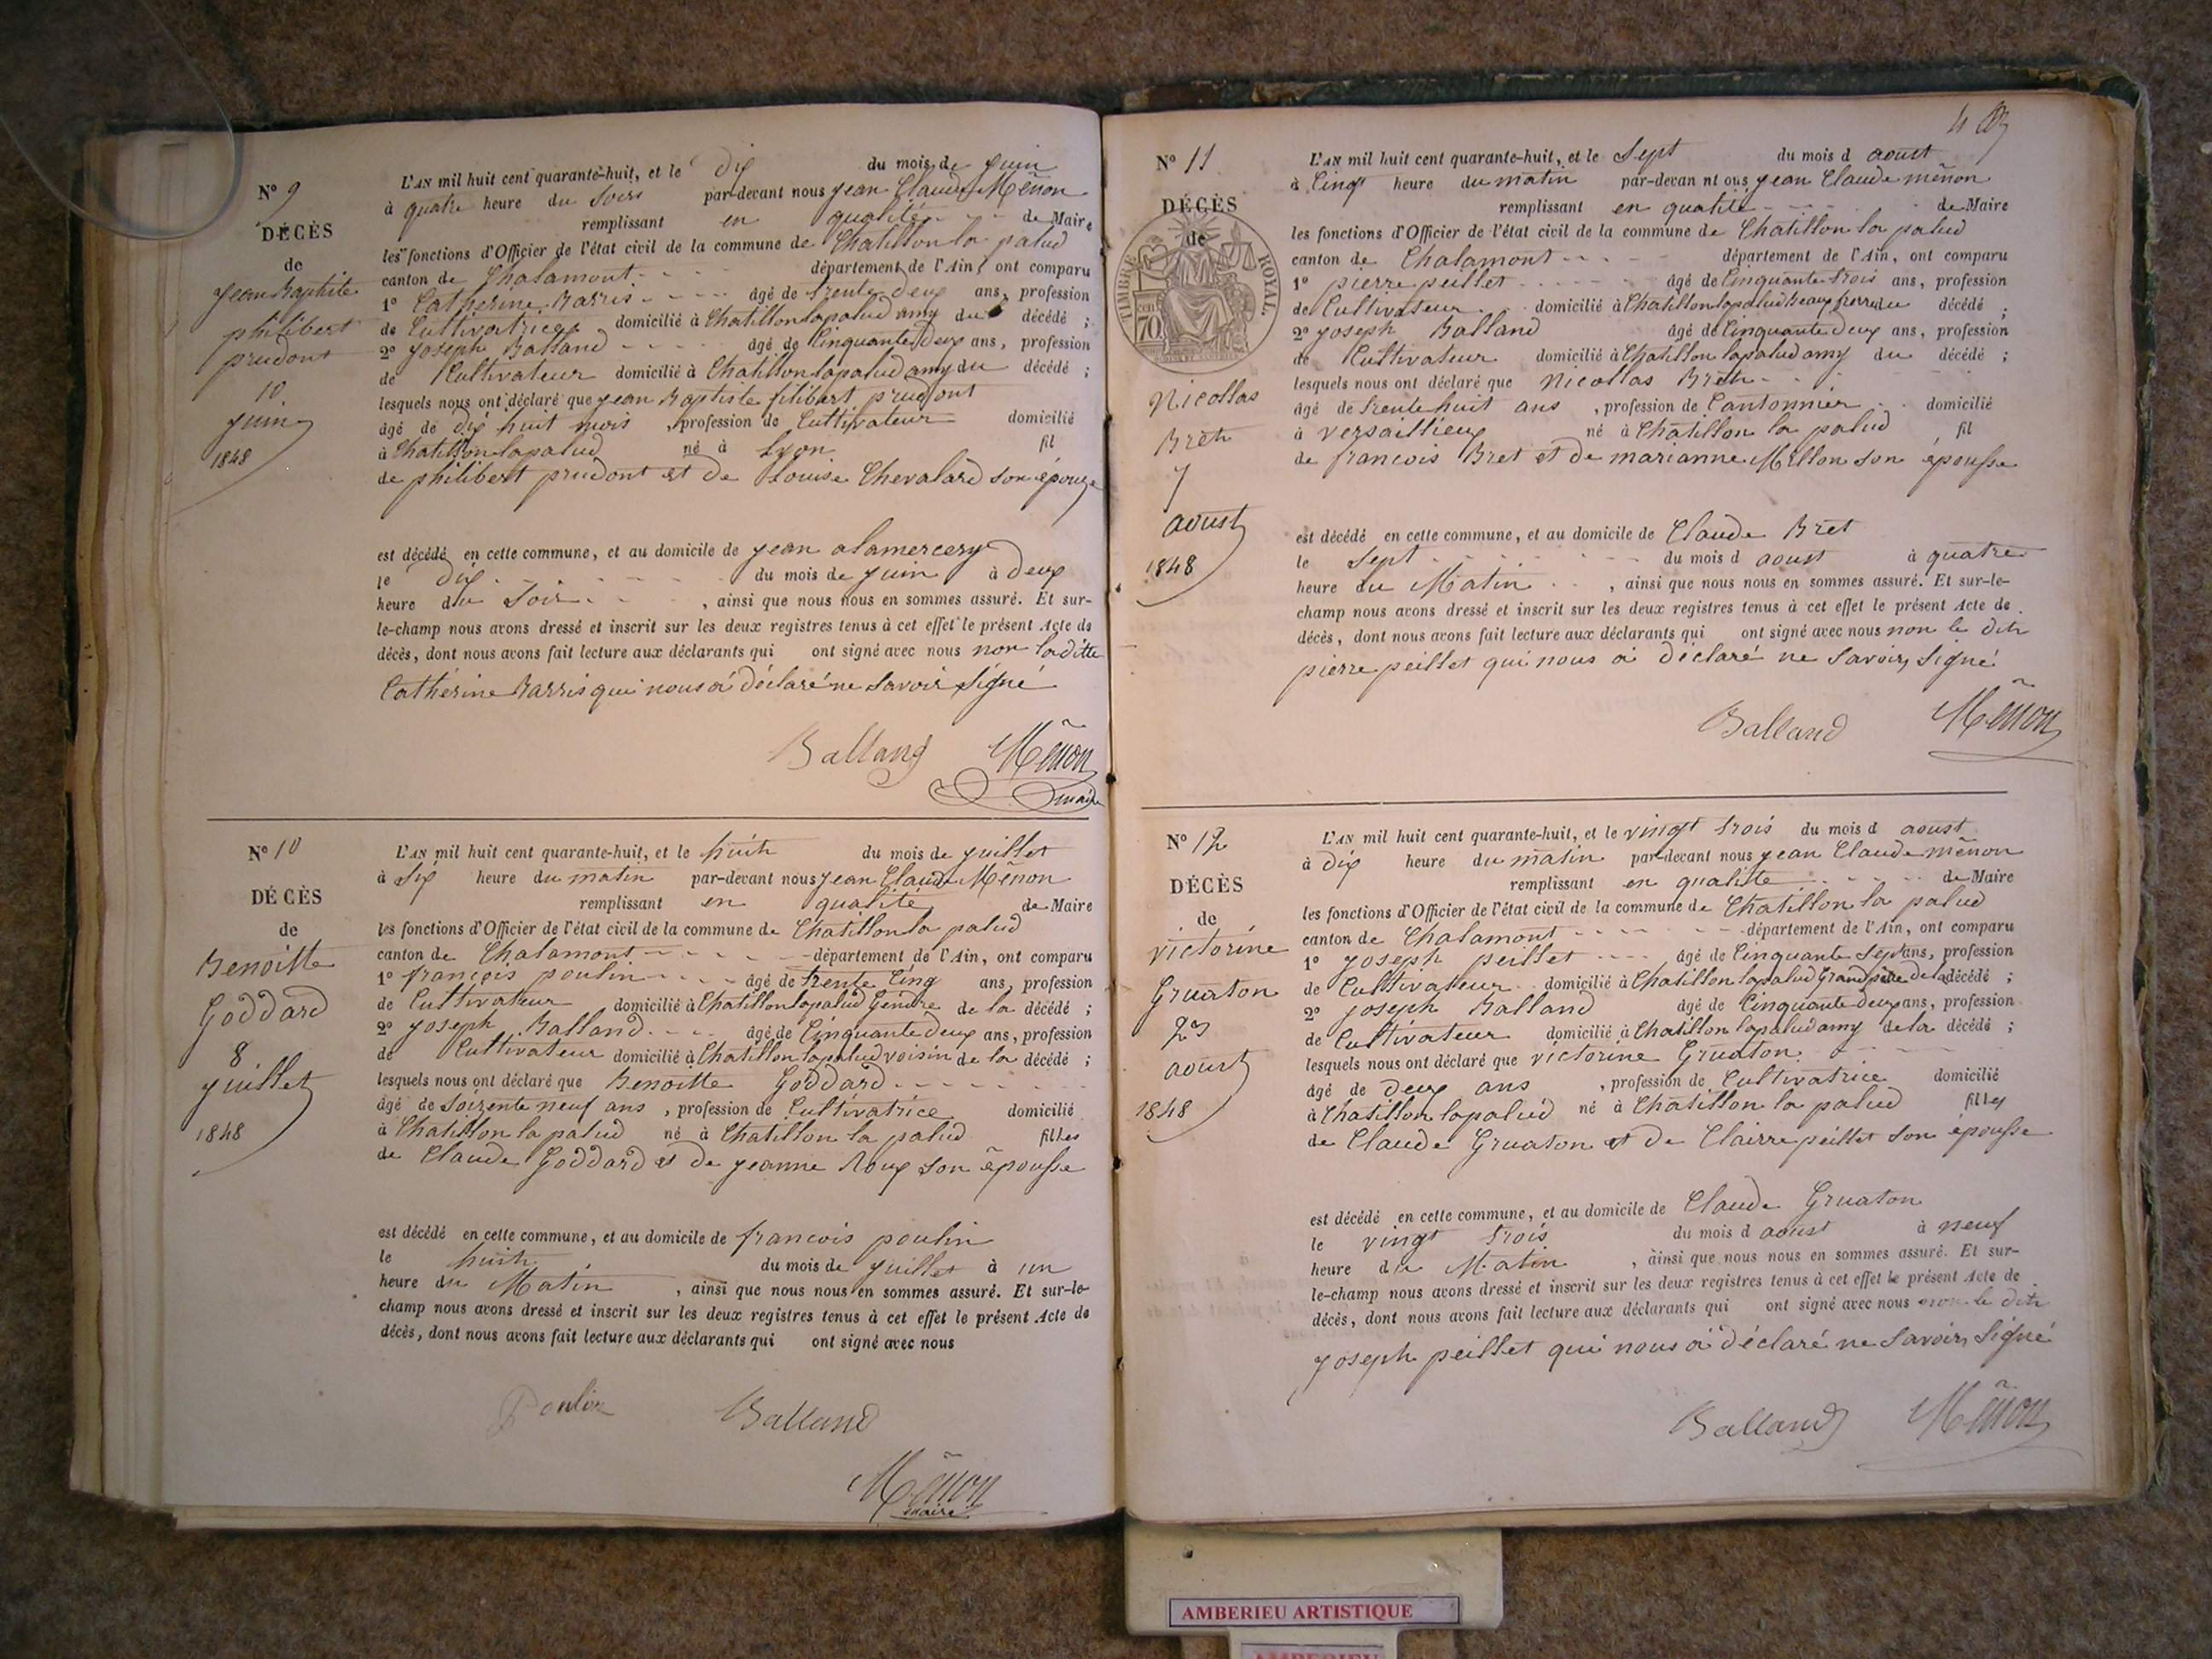 N° 9
DÉCÈS
de
jean Baptiste
philibert
prudont
10
juin
1848
L'AN mil huit cent quarante-huit, et le dix du mois de juin
à quatre heure du soirs par-devant nous jean Claude Mẽnon
remplissant en qualité de Maire
les fonctions d'Officier de l'état civil de la commune de Chatillon la palud
canton de Chalamont département de l'Ain, ont comparu
1° Catherine Barris âgé de trente deux ans, profession
de Cultivatrice domicilié à Chatillon lapalud amy du décédé ;
2° joseph Balland âgé de Cinquante deux ans, profession
de Cultivateur domicilié à Chatillon lapalud amy du décédé ;
lesquels nous ont déclaré que jean Baptiste filibert prudont
âgé de dix huit mois , profession de Cultivateur domicilié
à Chatillon lapalud né à Lyon fil
de philibert prudont et de Louise Chevalard son épouze
est décédé en cette commune, et au domicile de jean alamercery
le dix du mois de juin à deux
heure du Soir , ainsi que nous nous en sommes assuré. Et sur-
le-champ nous avons dressé et inscrit sur les deux registres tenus à cet effet le présent Acte de
décès, dont nous avons fait lecture aux déclarants qui ont signé avec nous non laditte
Catherine Barris qui nous a déclaré ne savoir signé
Balland Mẽnon
maire
N° 10
DÉCÈS
de
Benoitte
Goddard
8
juillet
1848
L'AN mil huit cent quarante-huit, et le huit du mois de juillet
à Six heure du matin par-devant nous jean Claude Mẽnon
remplissant en qualité de Maire
les fonctions d'Officier de l'état civil de la commune de Chatillon la palud
canton de Chalamont département de l'Ain, ont comparu
1° françois poulin âgé de trente Cinq ans, profession
de Cultivateur domicilié à Chatillon lapalud Gendre de la décédé ;
2° joseph Balland âgé de Cinquante deux ans, profession
de Cultivateur domicilié à Chatillon lapalud voisin de la décédé ;
lesquels nous ont déclaré que Benoitte Goddard
âgé de Soizente neuf ans , profession de Cultivatrice domicilié
à Chatillon la palud né à Chatillon la palud filles
de Claude Goddard et de jeanne Roux son épousse
est décédé en cette commune, et au domicile de francois poulin
le huit du mois de juillet à un
heure du Matin , ainsi que nous nous en sommes assuré. Et sur-le-
champ nous avons dressé et inscrit sur les deux registres tenus à cet effet le présent Acte de
décès, dont nous avons fait lecture aux déclarants qui ont signé avec nous
Poulin Balland
Mẽnon
maire
N° 11
DÉCÈS
de
TIMBRE ROYAL
70
Nicollas
Bret
7
aoust
1848
L'AN mil huit cent quarante-huit, et le Sept du mois d aoust
à Cinq heure du matin par-devan nt ous jean Claude mẽnon
remplissant en qualité de Maire
les fonctions d'Officier de l'état civil de la commune de Chatillon la palud
canton de Chalamont département de l'Ain, ont comparu
1° pierre peillet âgé de Cinquante trois ans, profession
de Cultivateur domicilié à Chatillon lapalud beaux frerre du décédé ;
2° joseph Balland âgé de Cinquante deux ans, profession
de Cultivateur domicilié à Chatillon lapalud amy du décédé ;
lesquels nous ont déclaré que Nicollas Bret
âgé de trente huit ans , profession de Cantonnier domicilié
à versaillieux né à Chatillon la palud fil
de francois Bret et de marianne Millon son épousse
est décédé en cette commune, et au domicile de Claude Bret
le Sept du mois d aoust à quatre
heure du Matin , ainsi que nous nous en sommes assuré. Et sur-le-
champ nous avons dressé et inscrit sur les deux registres tenus à cet effet le présent Acte de
décès, dont nous avons fait lecture aux déclarants qui ont signé avec nous non le dit
pierre peillet qui nous a déclaré ne savoir signé
Balland Mẽnon
N° 12
DÉCÈS
de
victorine
Gruaton
23
aoust
1848
L'AN mil huit cent quarante-huit, et le vingt trois du mois d aoust
à dix heure du matin par-devant nous jean Claude mẽnon
remplissant en qualitte de Maire
les fonctions d'Officier de l'état civil de la commune de Chatillon la palud
canton de Chalamont département de l'Ain, ont comparu
1° joseph peillet âgé de Cinquante Sept ans, profession
de Cultivateur domicilié à Chatillon lapalud Grand père de la décédé ;
2° joseph Balland âgé de Cinquante deux ans, profession
de Cultivateur domicilié à Chatillon lapalud amy de la décédé ;
lesquels nous ont déclaré que victorine Gruaton
âgé de deux ans , profession de Cultivatrice domicilié
à Chatillon lapalud né à Chatillon la palud filles
de Claude Gruaton et de Clairre peillet son épousse
est décédé en cette commune, et au domicile de Claude Gruaton
le vingt trois du mois d aoust à neuf
heure du Matin , ainsi que nous nous en sommes assuré. Et sur-
le-champ nous avons dressé et inscrit sur les deux registres tenus à cet effet le présent Acte de
décès, dont nous avons fait lecture aux déclarants qui ont signé avec nous non le dit
joseph peillet qui nous a déclaré ne savoir signé
Balland Mẽnon
AMBERIEU ARTISTIQUE
AMBERIEU